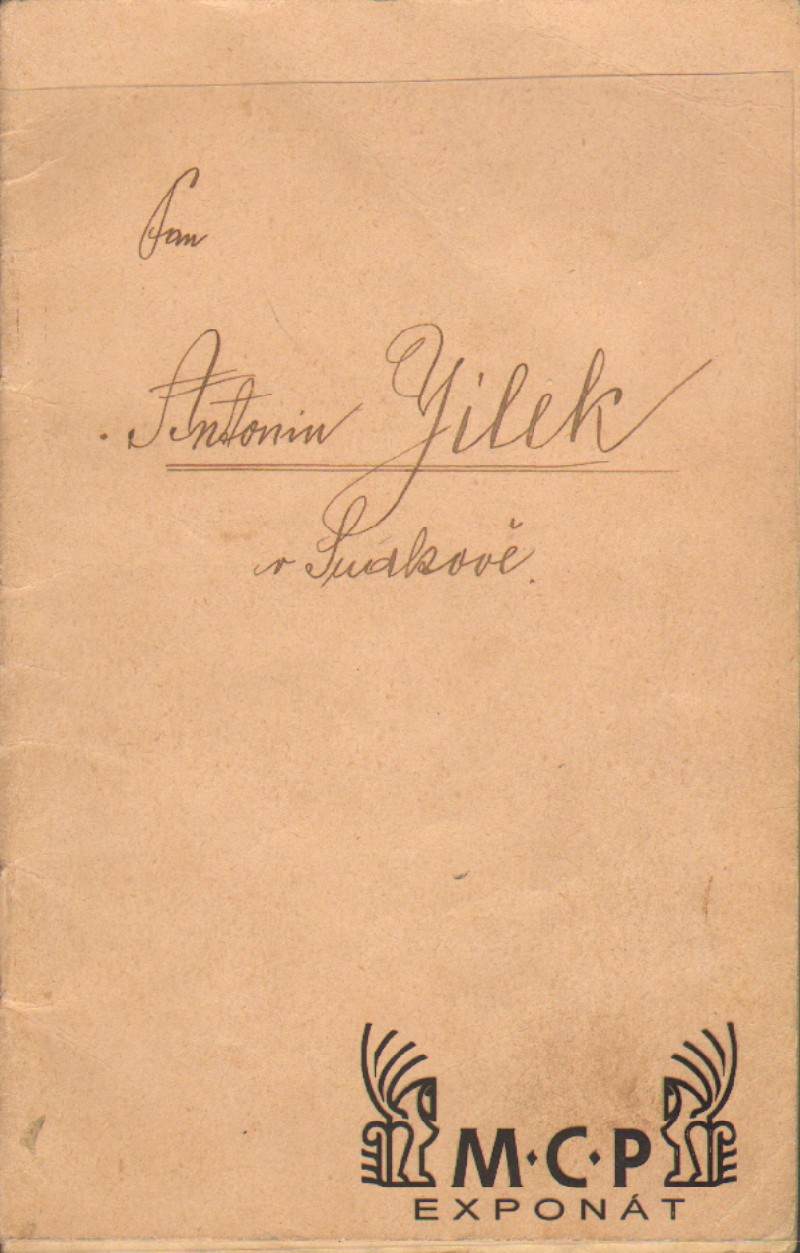 Pan
Antonin Jílek
v Sudkově.
M·C·P
EXPONÁT